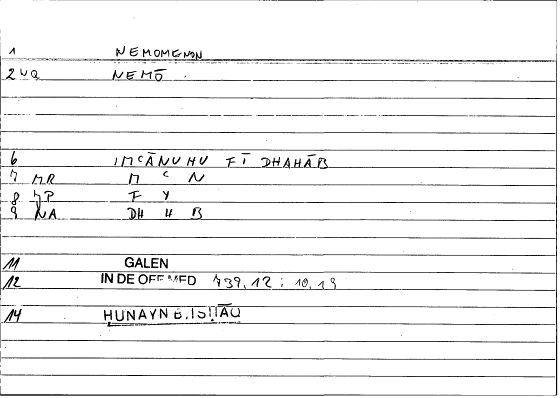 1 NEMOMENON
2 VQ NEMŌ
6 IMᶜĀNUHU FĪ DHAHĀB
7 MR M ᶜ N
8 MP F Y
9 NA DH H B
11 GALEN
12 IN DE OFF MED 739,12 ; 10,19
14 HUNAYN B. ISḤĀQ